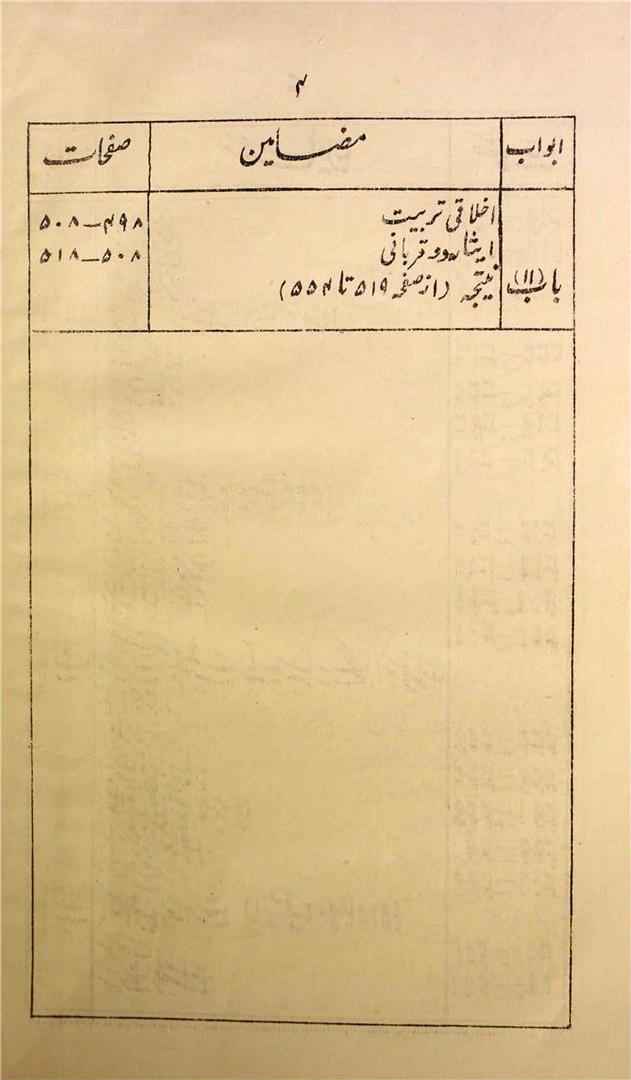 ۴
ابواب مضامین صفحات
اخلاقی تربیت ۴۹۸—۵۰۸
ایثار و قربانی ۵۰۸—۵۱۸
باب (۱۱) نتیجہ (از صفحہ ۵۱۹ تا ۵۵۴)